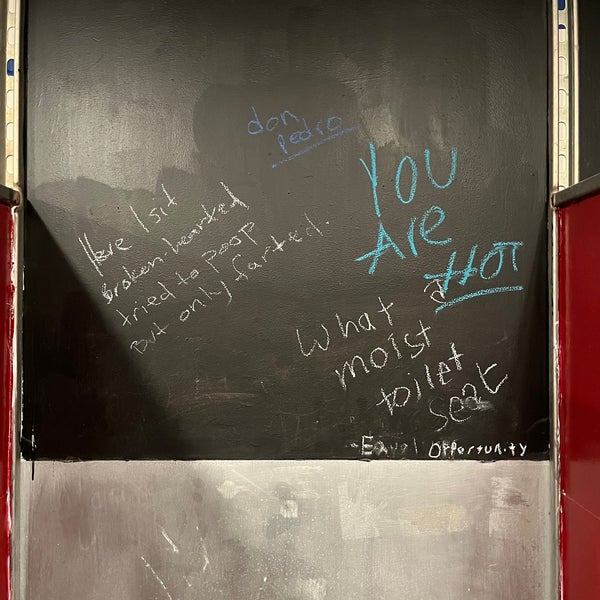 don
Pedro
Here I sit
broken-hearted
tried to poop
But only farted.
YOU
Are
a HOT
What
moist
toilet
seat
-Equal Opportunity